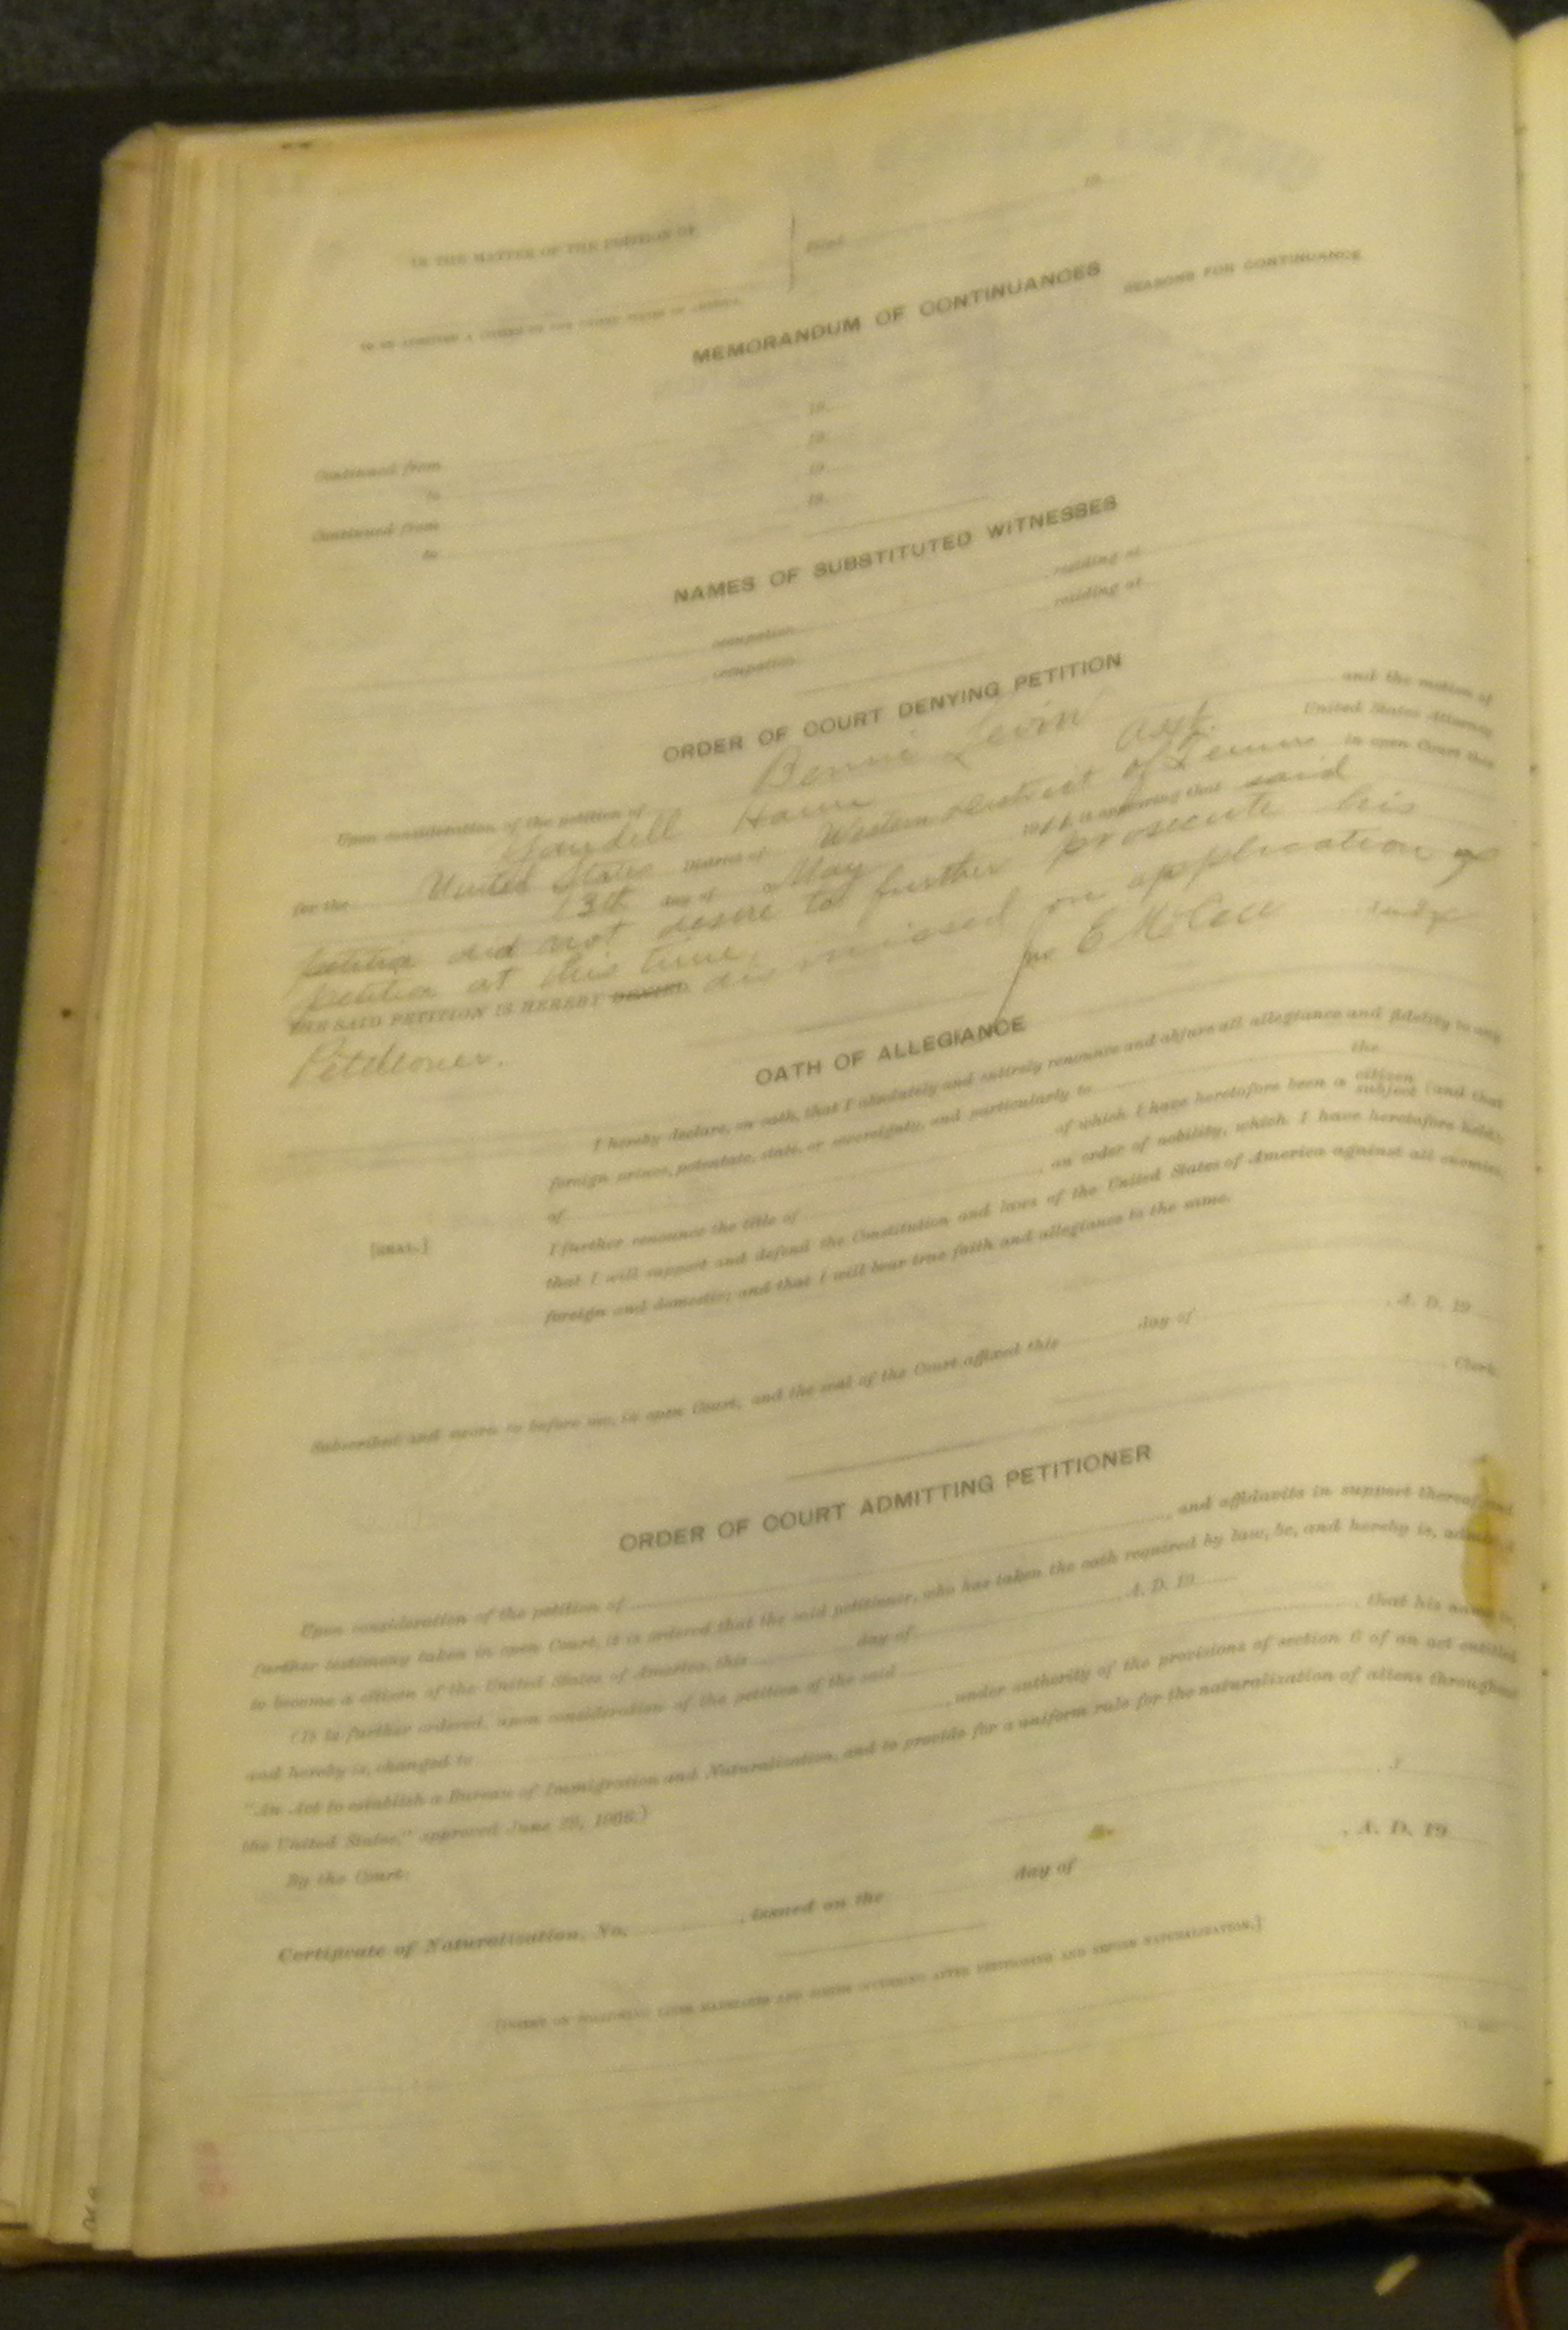 IN THE MATTER OF THE PETITION OF
Filed 19
TO BE ADMITTED A CITIZEN OF THE UNITED STATES OF AMERICA
MEMORANDUM OF CONTINUANCES
REASONS FOR CONTINUANCE
Continued from 19
to 19
Continued from 19
to 19
NAMES OF SUBSTITUTED WITNESSES
occupation residing at
occupation residing at
ORDER OF COURT DENYING PETITION
Upon consideration of the petition of Bennie Levin and the motion of
Yandell Haun asst. United States Attorney
for the United States District of Western District of in open Court this
13th day of May 19 it appearing that said
did not desire to further prosecute his
at this time.
THE SAID PETITION IS HEREBY DENIED dismissed on application of
Petitioner. Jno E McCall Judge
OATH OF ALLEGIANCE
I hereby declare, on oath, that I absolutely and entirely renounce and abjure all allegiance and fidelity to any
foreign prince, potentate, state, or sovereignty, and particularly to the
of of which I have heretofore been a citizen subject (and that
I further renounce the title of , an order of nobility, which I have heretofore held);
that I will support and defend the Constitution and laws of the United States of America against all enemies,
foreign and domestic; and that I will bear true faith and allegiance to the same.
[SEAL.]
Subscribed and sworn to before me, in open Court, and the seal of the Court affixed this day of , A. D. 19
, Clerk
ORDER OF COURT ADMITTING PETITIONER
Upon consideration of the petition of , and affidavits in support thereof, and
further testimony taken in open Court, it is ordered that the said petitioner, who has taken the oath required by law, be, and hereby is, admitted
to become a citizen of the United States of America, this day of , A. D. 19
(It is further ordered, upon consideration of the petition of the said , that his name be,
and hereby is, changed to , under authority of the provisions of section 6 of an act entitled
"An Act to establish a Bureau of Immigration and Naturalization, and to provide for a uniform rule for the naturalization of aliens throughout
the United States," approved June 29, 1906.)
By the Court:
Certificate of Naturalization, No. , issued on the day of , A. D. 19